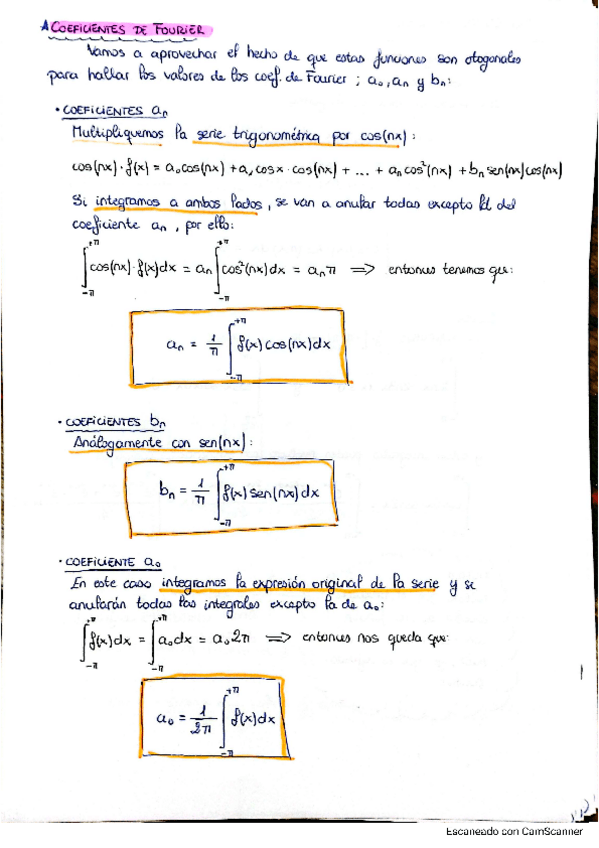 COEFICIENTES DE FOURIER
Vamos a aprovechar el hecho de que estas funciones son otogonales
para hallar los valores de los coef. de Fourier ; a₀, aₙ y bₙ:
· COEFICIENTES aₙ
Multipliquemos la serie trigonométrica por cos(nx):
cos(nx)·f(x) = a₀cos(nx) + a₁cosx·cos(nx) + ... + aₙcos²(nx) + bₙsen(nx)cos(nx)
Si integramos a ambos lados, se van a anular todas excepto el del
coeficiente aₙ, por ello:
∫_{-π}^{+π} cos(nx)·f(x)dx = aₙ ∫_{-π}^{+π} cos²(nx)dx = aₙπ ⟹ entonces tenemos que:
aₙ = 1/π ∫_{-π}^{+π} f(x)cos(nx)dx
· COEFICIENTES bₙ
Análogamente con sen(nx):
bₙ = 1/π ∫_{-π}^{+π} f(x)sen(nx)dx
· COEFICIENTE a₀
En este caso integramos la expresión original de la serie y se
anularán todas las integrales excepto la de a₀:
∫_{-π}^{π} f(x)dx = ∫_{-π}^{π} a₀dx = a₀2π ⟹ entonces nos queda que:
a₀ = 1/2π ∫_{-π}^{+π} f(x)dx
Escaneado con CamScanner